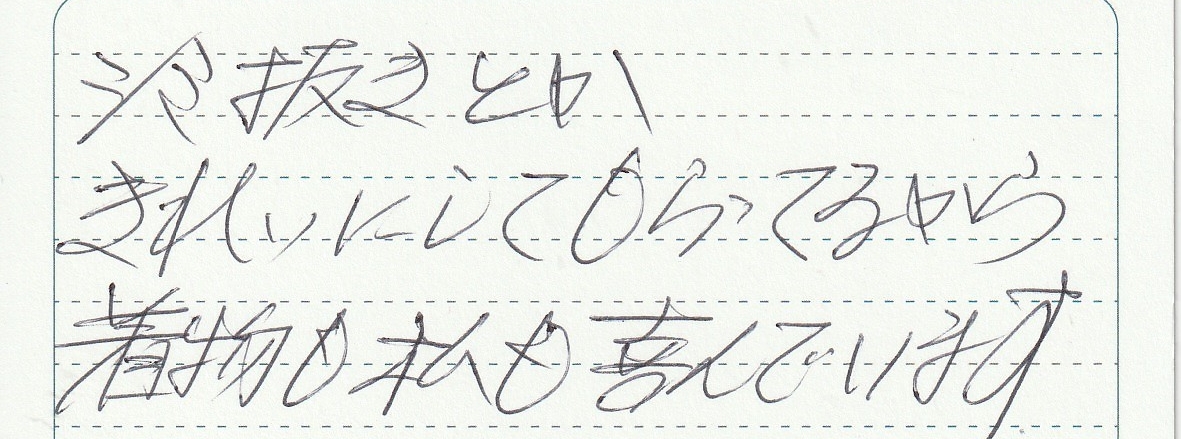 汗抜きとか
きれいにしてもらってるから
着物も私も喜んでいます